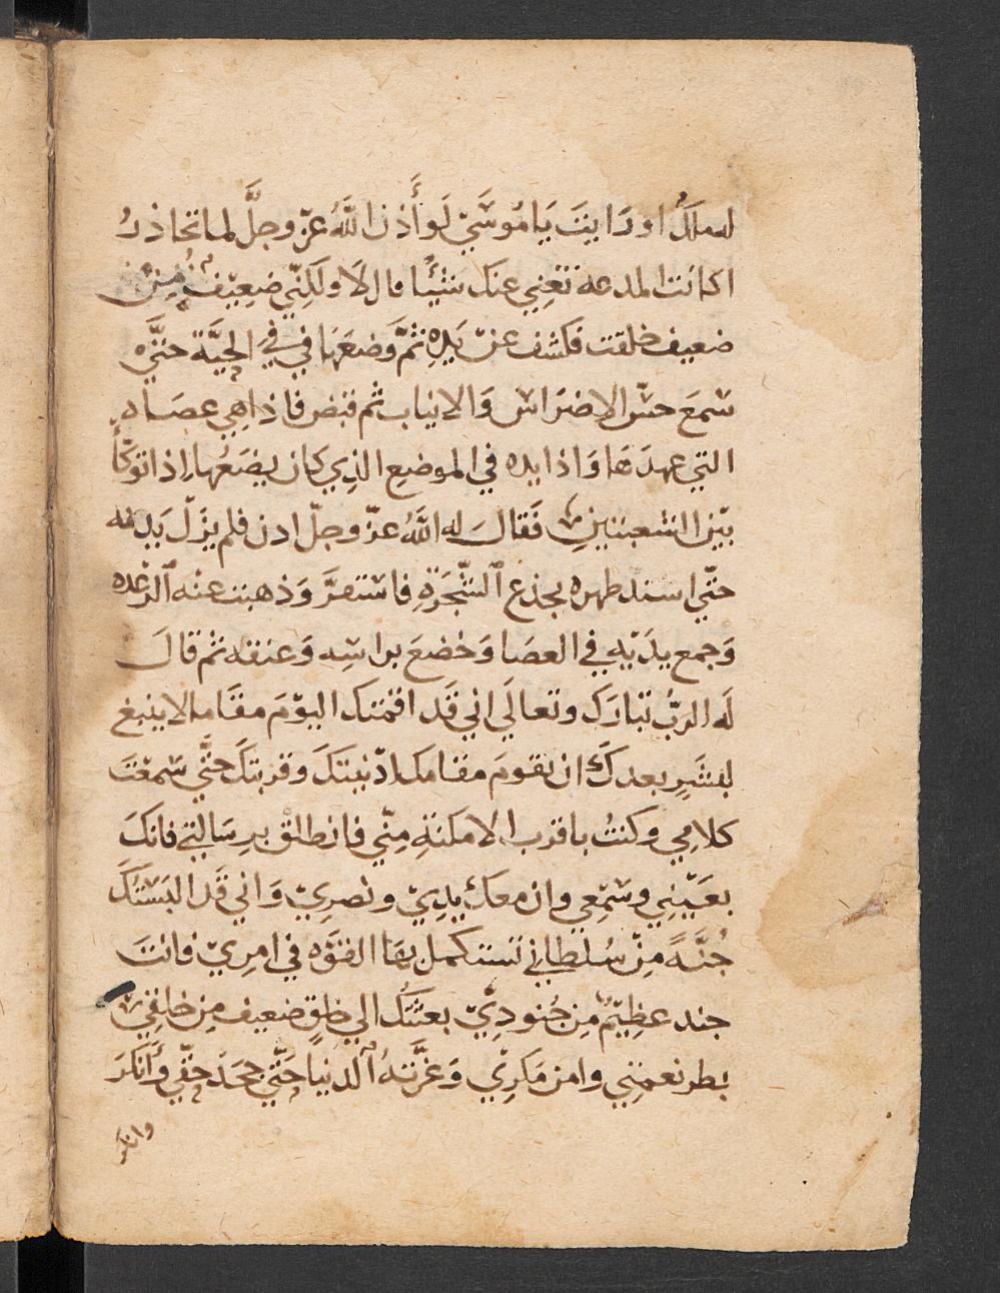 له ملك اورايت يَا مُوسَي لَو أَذن اللَّهُ عزّ وجلَّ لما تحاذرُ
اكانت المدرعة تغِني عنك شئيًا قال لَا ولكِنّي ضعِيف مِنْ
ضعيف خلقت فكشف عن يَدِه ثمَّ وَضعَها في فِي الحيَّة حتّي
سَمعَ حسّ الاضرَاس وَالانياب ثم قبض فاذا هي عصَاه
التي عهدَهَا وَاذا يده في الموضع الذِي كان يضَعُها اذا توكّأ
بيْن الشعبتينِ فَقالَ له اللَّهُ عزّ وجلّ ادن فلم يزَلْ يَدنيه
حتّي اسند ظهره بجذع الشّجَرَةِ فاستقرَّ وَذهبت عنه الرّعْده
وَجمع يدَيْهِ في العصَا وَخضعَ براسِه وَعنقه ثم قالَ
لَه الربّ تبارَك وتعالَي اني قَد اقمتك اليَوْمَ مقَاما لا ينبغ
لبشَرٍ بعدكَ ان يقومَ مقامك ادْنيتكَ وقربتكَ حتَّي سَمعْتَ
كلامِي وكنتُ باقرب الامكنةِ مِنّي فانطلق برِسَالتي فانكَ
بعَيْنِي وسَمْعِي وان معك يدِيْ ونصرِيْ وَاني قَد البَسْتُكَ
جُنَّةً مِنْ سُلطاني تستكمل بهَا القوَّه في امرِيْ فانتَ
جند عظِيْم مِن جُنودِيْ بعثتُك الي خلقٍ ضعيف مِن خلقِيْ
بطر نعمتِي وامن مَكرِيْ وَغرَّتهُ الدنيا حَتّي جحَدَ حقّي وَأَنكَرَ
وانكر